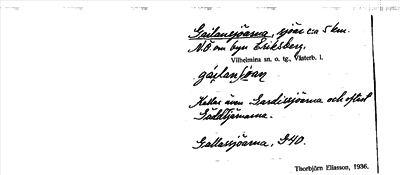 Gailansjöarna, sjöar c:a 5 km.
N.O. om byn Eriksberg,
Vilhelmina sn. o. tg., Västerb. l.
Kallas även Gardissjöarna och oftast
Gäddtjärnarna.
Gallassjöarna, G40.
Thorbjörn Eliasson, 1936.